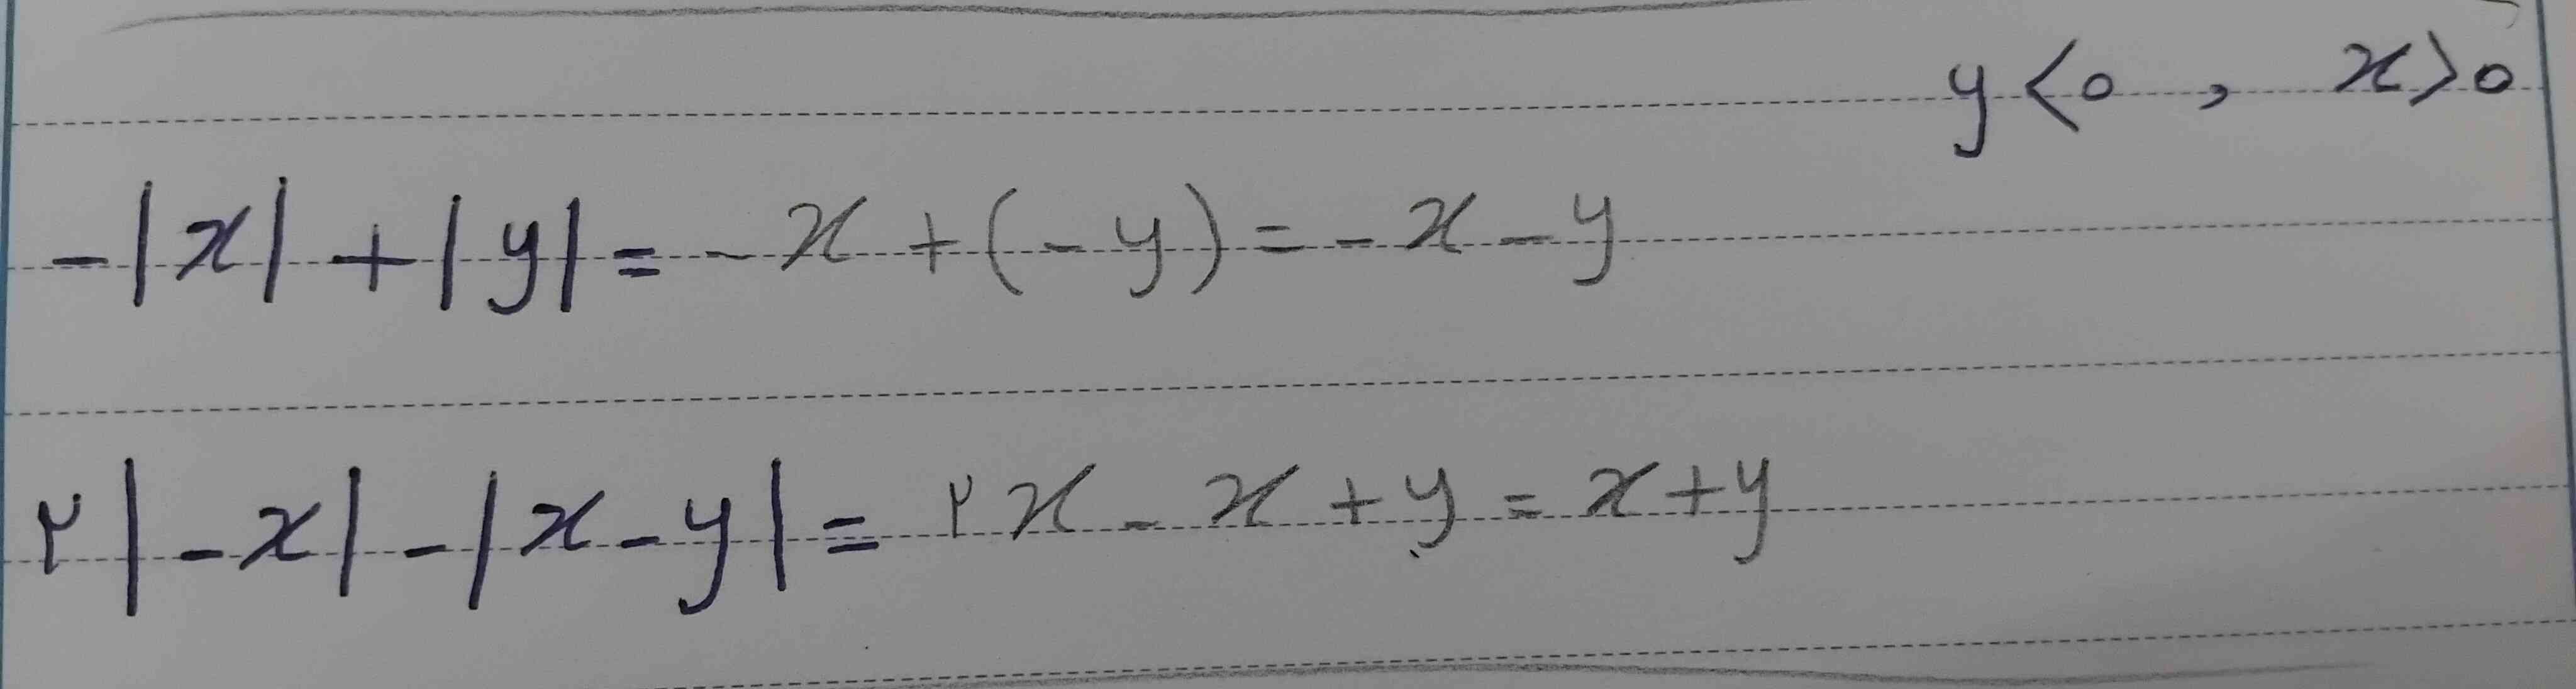 y<0 , x>0
-|x|+|y|=-x+(-y)=-x-y
۲|-x|-|x-y|=۲x-x+y=x+y